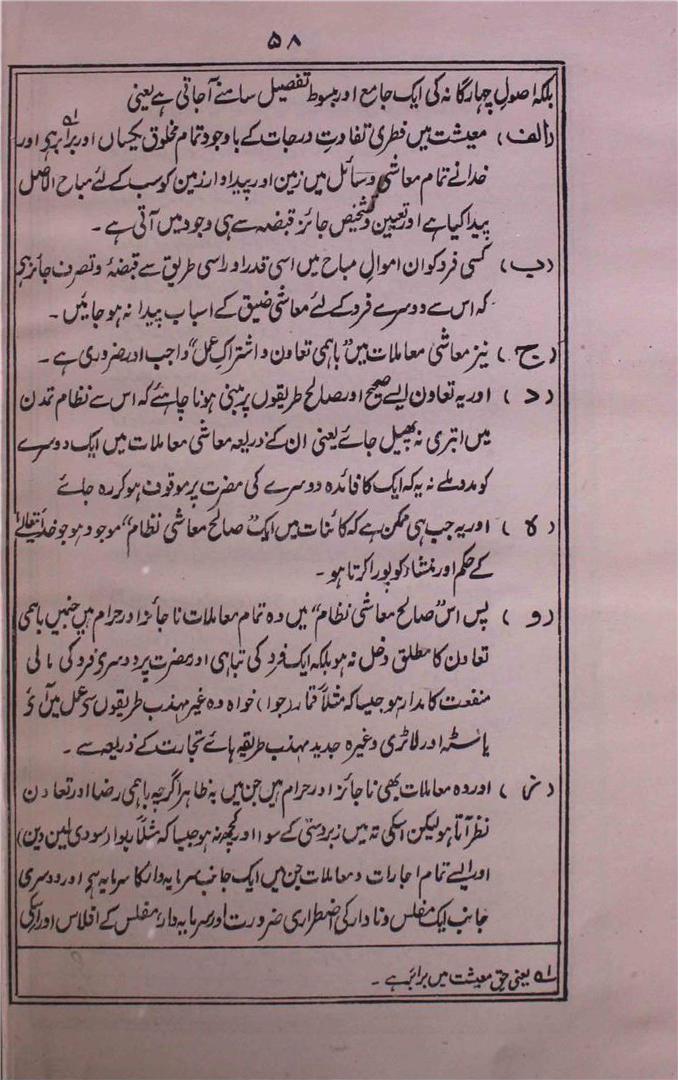 ۵۸
بلکہ اصولِ چہارگانہ کی ایک جامع اور مبسوط تفصیل سامنے آجاتی ہے یعنی
(الف) معیشت میں فطری تفاوتِ درجات کے باوجود تمام مخلوق یکساں اور برابر ہے اور
خدا نے تمام معاشی وسائل میں زمین اور پیداوار زمین کو سب کے لئے مباح الاصل
پیدا کیا ہے اور تعیین و تشخیص جائز قبضہ سے ہی وجود میں آتی ہے۔
(ب) کسی فرد کو ان اموالِ مباح میں اسی قدر اور اسی طریق سے قبضہ و تصرف جائز ہے
کہ اس سے دوسرے فرد کے لئے معاشی ضیق کے اسباب پیدا نہ ہو جائیں۔
(ج) نیز معاشی معاملات میں "باہمی تعاون و اشتراکِ عمل" واجب اور ضروری ہے۔
(د) اور یہ تعاون ایسے صحیح اور صالح طریقوں پر مبنی ہونا چاہئے کہ اس سے نظام تمدن
میں ابتری نہ پھیل جائے یعنی ان کے ذریعہ معاشی معاملات میں ایک دوسرے
کو مدد ملے نہ یہ کہ ایک کا فائدہ دوسرے کی مضرت پر موقوف ہو کر رہ جائے
(ہ) اور یہ جب ہی ممکن ہے کہ کائنات میں ایک "صالح معاشی نظام" موجود ہو جو خدائے تعالیٰ
کے حکم اور منشاء کو پورا کرتا ہو۔
(و) پس اس "صالح معاشی نظام" میں وہ تمام معاملات ناجائز اور حرام ہیں جنہیں باہمی
تعاون کا مطلق دخل نہ ہو بلکہ ایک فرد کی تباہی اور مضرت پر دوسرے فرد کی مالی
منفعت کا مدار ہو جیسا کہ مثلاً قمار (جوا) خواہ وہ غیر مہذب طریقوں سے عمل میں آئے
یا سٹہ اور لاٹری وغیرہ جدید مہذب طریقہ ہائے تجارت کے ذریعہ سے۔
(ز) اور وہ معاملات بھی ناجائز اور حرام ہیں جن میں بہ ظاہر اگرچہ باہمی رضا اور تعاون
نظر آتا ہو لیکن اسکی تہ میں زبردستی کے سوا اور کچھ نہ ہو جیسا کہ مثلاً ربوا (سودی لین دین)
اور ایسے تمام اجارات و معاملات جن میں ایک جانب سرمایہ دار کا سرمایہ ہے اور دوسری
جانب ایک مفلس و نادار کی اضطراری ضرورت اور سرمایہ دار، مفلس کے افلاس اور اسکی
۱ یعنی حقِ معیشت میں برابر ہے۔